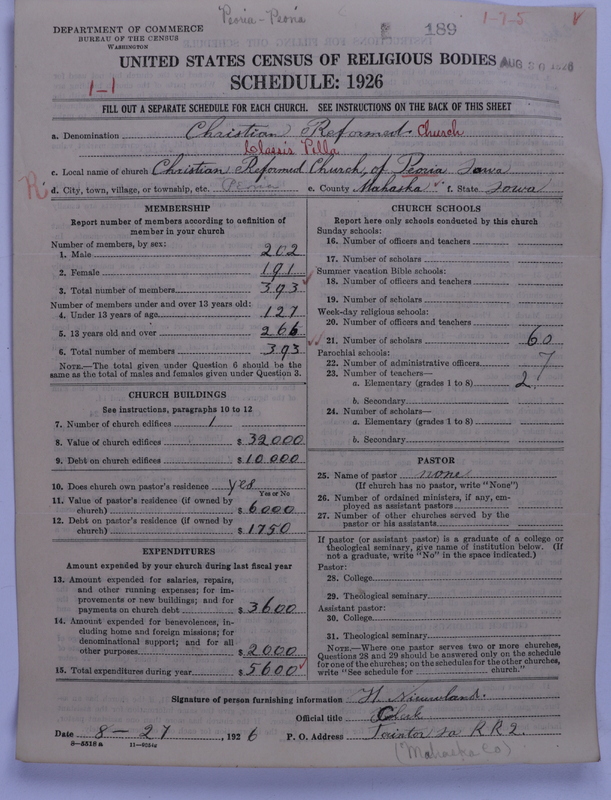 Peoria - Peoria
DEPARTMENT OF COMMERCE
BUREAU OF THE CENSUS
WASHINGTON
189
1-7-5
AUG 30 1926
1-1
UNITED STATES CENSUS OF RELIGIOUS BODIES
SCHEDULE: 1926
FILL OUT A SEPARATE SCHEDULE FOR EACH CHURCH. SEE INSTRUCTIONS ON THE BACK OF THIS SHEET
a. Denomination Christian Reformed Church
Classis Pella
c. Local name of church Christian Reformed Church, of Peoria Iowa
R d. City, town, village, or township, etc. Peoria e. County Mahaska f. State Iowa
MEMBERSHIP
Report number of members according to definition of
member in your church
Number of members, by sex:
1. Male 202
2. Female 191
3. Total number of members 393
Number of members under and over 13 years old:
4. Under 13 years of age 127
5. 13 years old and over 266
6. Total number of members 393
NOTE.—The total given under Question 6 should be
same as the total of males and females given under Question 3.
CHURCH BUILDINGS
See instructions, paragraphs 10 to 12
7. Number of church edifices 1
8. Value of church edifices $ 32000
9. Debt on church edifices $ 10000
10. Does church own pastor's residence yes
Yes or No
11. Value of pastor's residence (if owned by
church) $ 6000
12. Debt on pastor's residence (if owned by
church) $ 1750
EXPENDITURES
Amount expended by your church during last fiscal year
13. Amount expended for salaries, repairs,
and other running expenses; for im-
provements or new buildings; and for
payments on church debt $ 3600
14. Amount expended for benevolences, in-
cluding home and foreign missions; for
denominational support; and for all
other purposes $ 2000
15. Total expenditures during year $ 5600
CHURCH SCHOOLS
Report here only schools conducted by this church
Sunday schools:
16. Number of officers and teachers
17. Number of scholars
Summer vacation Bible schools:
18. Number of officers and teachers
19. Number of scholars
Week-day religious schools:
20. Number of officers and teachers
21. Number of scholars 60
Parochial schools:
22. Number of administrative officers 7
23. Number of teachers—
a. Elementary (grades 1 to 8) 2
b. Secondary
24. Number of scholars—
a. Elementary (grades 1 to 8)
b. Secondary
PASTOR
25. Name of pastor none
(If church has no pastor, write "None")
26. Number of ordained ministers, if any, em-
ployed as assistant pastors
27. Number of other churches served by the
pastor or his assistants
If pastor (or assistant pastor) is a graduate of a college or
theological seminary, give name of institution below. (If
not a graduate, write "No" in the space indicated.)
Pastor:
28. College
29. Theological seminary
Assistant pastor:
30. College
31. Theological seminary
NOTE.—Where one pastor serves two or more churches,
Questions 28 and 29 should be answered only on the schedule
for one of the churches; on the schedules for the other churches,
write "See schedule for church."
Signature of person furnishing information H. Nieuwland.
Official title Clerk
Date 8 - 27, 1926 P. O. Address Taintor Ia RR2.
8-5318a 11-9184g
(Mahaska Co)